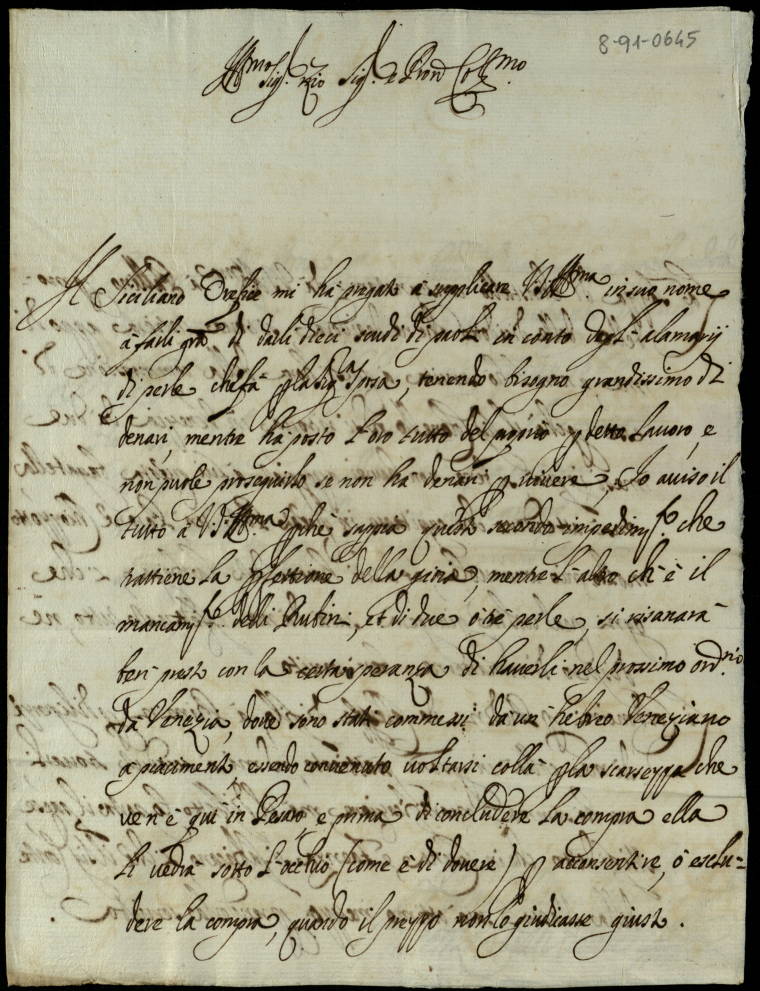 8-91-0645
Ill.mo Sig.r mio Sig.r e Pron Col.mo
Il Siciliano Orefice mi hà pregato à supplicare VS Ill.ma in suo nome
à farli gra di darli dieci scudi di paoli in conto degl'alamarij
di perle che fà p la Sig.ra Sposa, tenendo bisogno grandissimo di
denari, mentre hà posto l'oro tutto del proprio p detto lavoro, e
non puole proseguirlo se non hà denari p vivere. Io avviso il
tutto à VS Ill.ma p chè sappia questo secondo impedim.to che
trattiene la pfettione della gioia, mentre l'altro ch'è il
mancam.to delli Rubini, et di due ò tre perle, si risanarà
ben presto con la certa speranza di haverli nel prossimo ord.rio
da Venezia, dove sono stati commessi da un hebreo Veneziano
a piacimento, essendo convenuto voltarsi colla p la scarsezza che
ve n'è quì in Pesaro, e prima di concludere la compra ella
li vedrà sotto l'occhio (come è di dovere) p acconsentire, ò esclu=
dere la compra, quando il prezzo non lo giudicasse giusto.